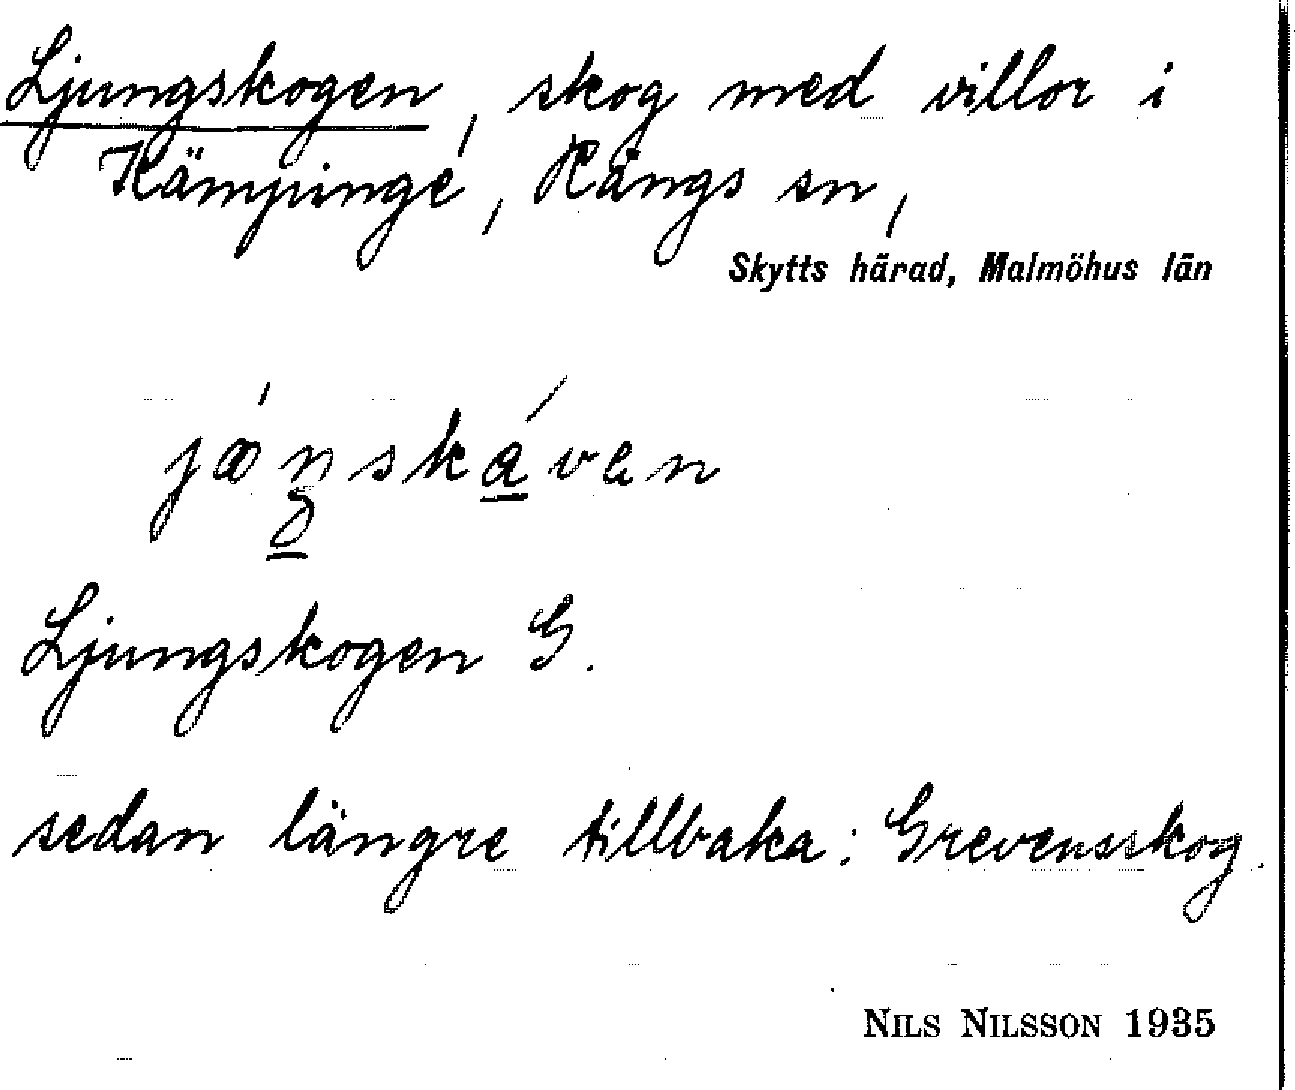 Ljungskogen, skog med villor i
Kämpinge, Rängs sn,
Skytts härad, Malmöhus län
Ljungskogen G.
sedan längre tillbaka: Grevensskog.
NILS NILSSON 1935